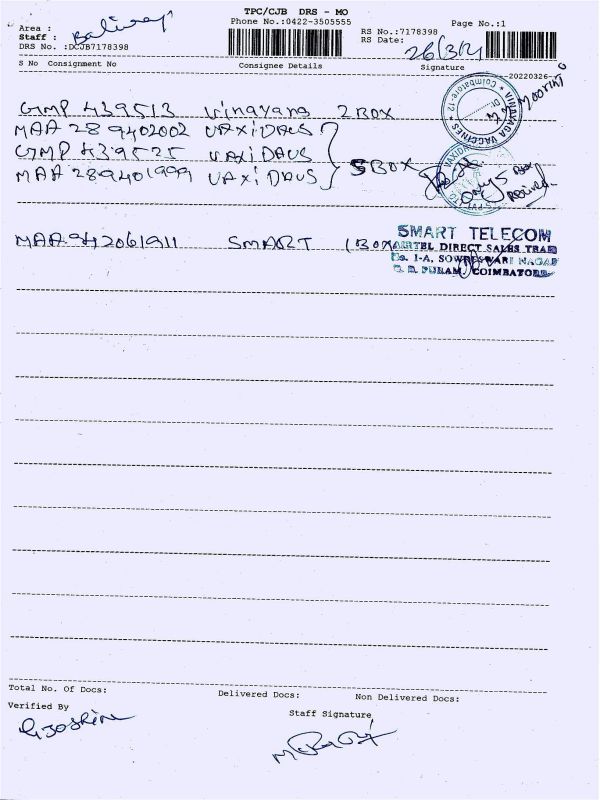 TPC/CJB DRS - MO
Phone No.:0422-3505555
Page No.:1
Area :
Staff :
DRS No. :DCJB7178398
RS No.:7178398
RS Date: 26/3/21
S No Consignment No Consignee Details Signature
20220326
GMP 439513 Vinayana 2 BOX
MAA 289402002 VAXiDAUS
GMP 439525 VAXiDAUS
5 BOX
MAA 289401999 VAXiDAUS
VINAYAGA VACCINES
Coimbatore-12
Only 5 Box
Received
MAA 942061911 SMART 1 BOX
SMART TELECOM
AIRTEL DIRECT SALES TEAM
No. 1-A, SOWRESWARI NAGAR
PURAM, COIMBATORE
Total No. Of Docs: Delivered Docs: Non Delivered Docs:
Verified By
Staff Signature